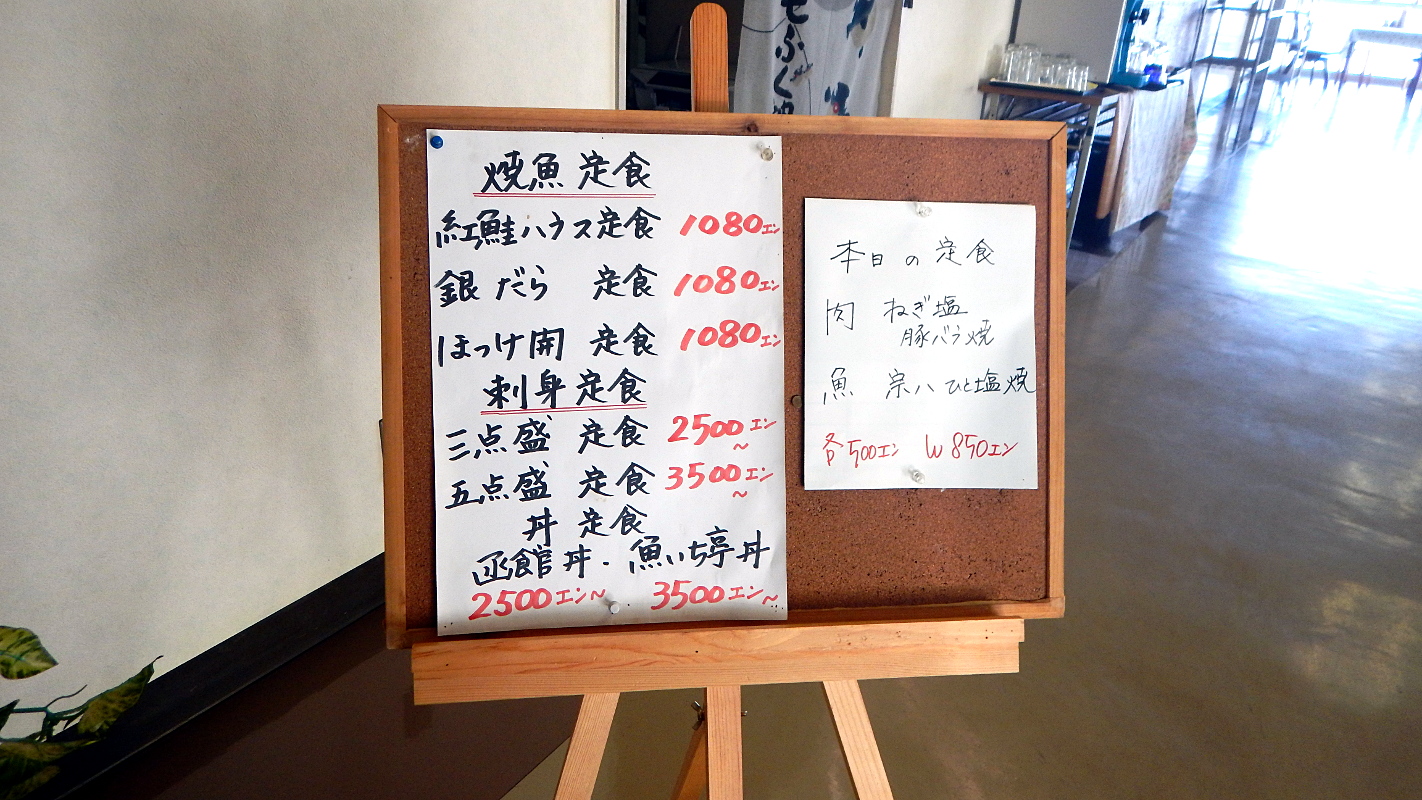 焼魚定食
紅鮭ハラス定食 1080エン
銀だら 定食 1080エン
ほっけ開 定食 1080エン
刺身定食
三点盛 定食 2500エン~
五点盛 定食 3500エン~
丼 定食
函館丼・魚いち亭丼
2500エン~ 3500エン~
本日の定食
肉 ねぎ塩
豚バラ焼
魚 宗八ひと塩焼
各500エン W850エン